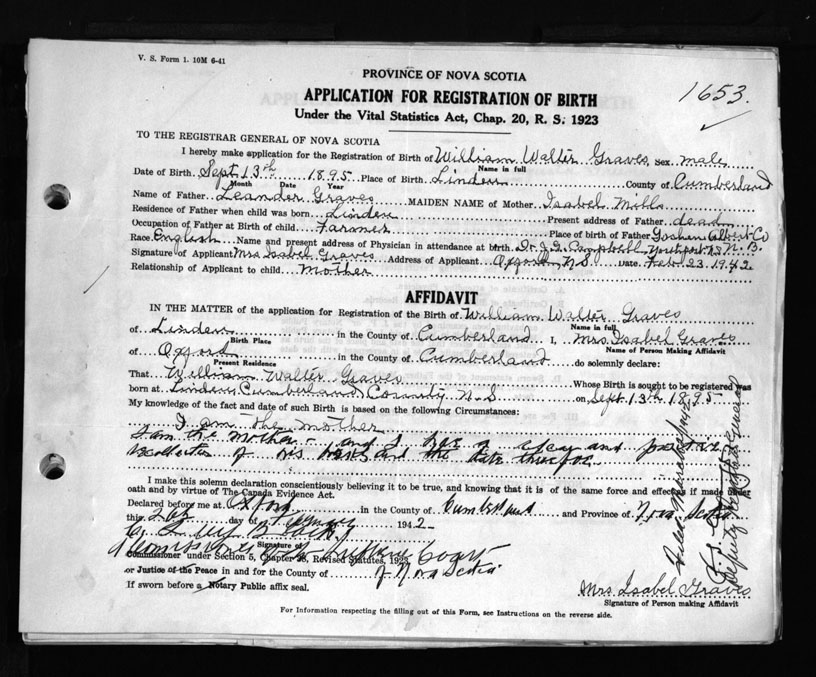 V. S. Form 1. 10M 6-41
PROVINCE OF NOVA SCOTIA
APPLICATION FOR REGISTRATION OF BIRTH
1653.
Under the Vital Statistics Act, Chap. 20, R. S. 1923
TO THE REGISTRAR GENERAL OF NOVA SCOTIA
I hereby make application for the Registration of Birth of William Walter Graves, Sex male
Name in full
Date of Birth. Sept 13th 1895 Place of Birth Linden County of Cumberland
Month Date Year
Name of Father Leander Graves MAIDEN NAME of Mother Isabel Mills
Residence of Father when child was born Linden Present address of Father dead
Occupation of Father at Birth of child Farmer Birth place of Father Goshen Albert Co
Race English Name and present address of Physician in attendance at birth Dr. J. D. Campbell, Northport N.S. N. B.
Signature of Applicant Mrs Isabel Graves Address of Applicant Oxford, N S Date Feb 23 1942
Relationship of Applicant to child Mother
AFFIDAVIT
IN THE MATTER of the application for Registration of the Birth of William Walter Graves
Name in full
of Linden in the County of Cumberland I, Mrs Isabel Graves
Birth Place Name of Person Making Affidavit
of Oxford in the County of Cumberland do solemnly declare:
Present Residence
That William Walter Graves Whose Birth is sought to be registered was
born at Linden, Cumberland County N. S. on Sept. 13th 1895
My knowledge of the fact and date of such Birth is based on the following Circumstances:
I am the mother
I am the mother - and I have a clear and positive
recollection of his birth and the date thereof.
I make this solemn declaration conscientiously believing it to be true, and knowing that it is of the same force and effect as if made under
oath and by virtue of The Canada Evidence Act.
Declared before me at Oxford in the County of Cumberland and Province of Nova Scotia
this day of February 1942-
Signature of
A Commissioner of the Supreme Court
Commissioner under Section 5, Chapter 38, Revised Statutes, 1923
of Nova Scotia
or Justice of the Peace in and for the County of
If sworn before a Notary Public affix seal.
Mrs. Isabel Graves
Signature of Person making Affidavit
For Information respecting the filling out of this Form, see Instructions on the reverse side.
Filed March 1942
Deputy Registrar General